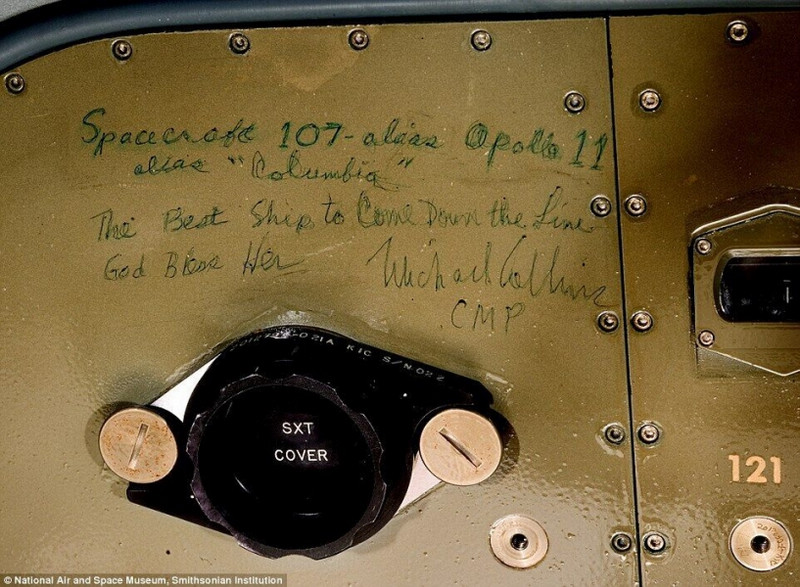 Spacecraft 107 - alias Apollo 11
alias "Columbia"
The Best Ship to Come Down the Line
God Bless Her
Michael Collins
CMP
021A K1C S/N 022
SXT
COVER
121
© National Air and Space Museum, Smithsonian Institution